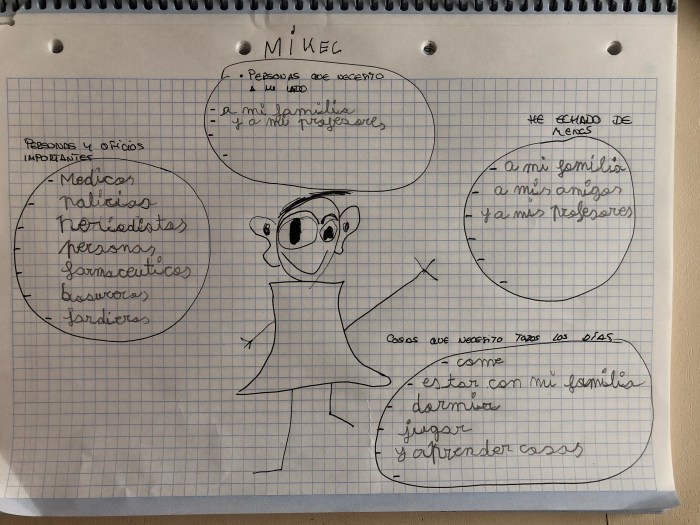 MIKEL
• PERSONAS QUE NECESITO
A MI LADO
- a mi familia
- y a mis profesores
-
-
PERSONAS Y OFICIOS
IMPORTANTES
- Medicos
- policias
- periodistas
- personas
- farmaceuticos
- basureros
-
HE ECHADO DE
MENOS
- a mi familia
- a mis amigos
- y a mis profesores
-
-
-
COSAS QUE NECESITO TODOS LOS DÍAS
- come
- estar con mi familia
- dormir
- jugar
- y aprender cosas
-